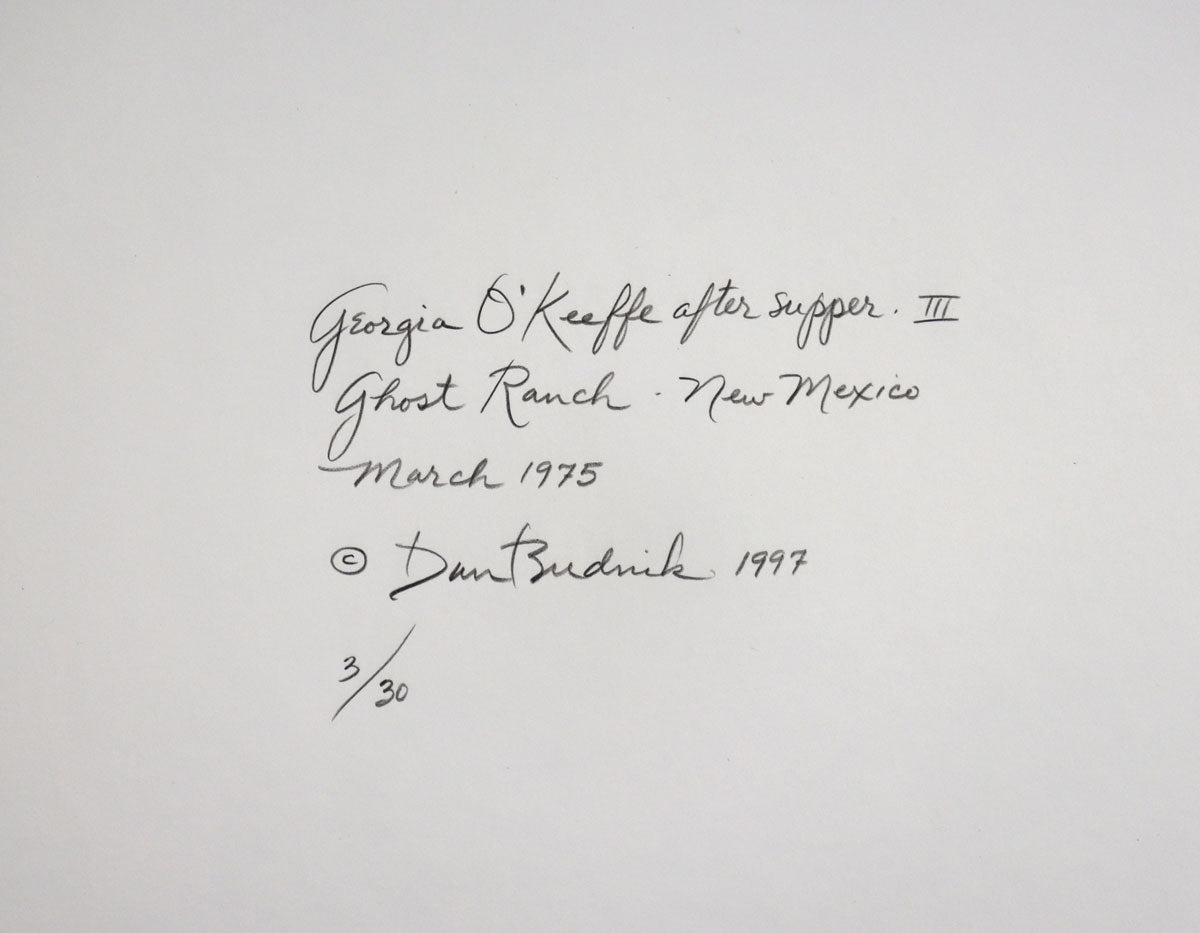 Georgia O'Keeffe after supper. III
Ghost Ranch - New Mexico
March 1975
© Dan Budnik 1997
3/30